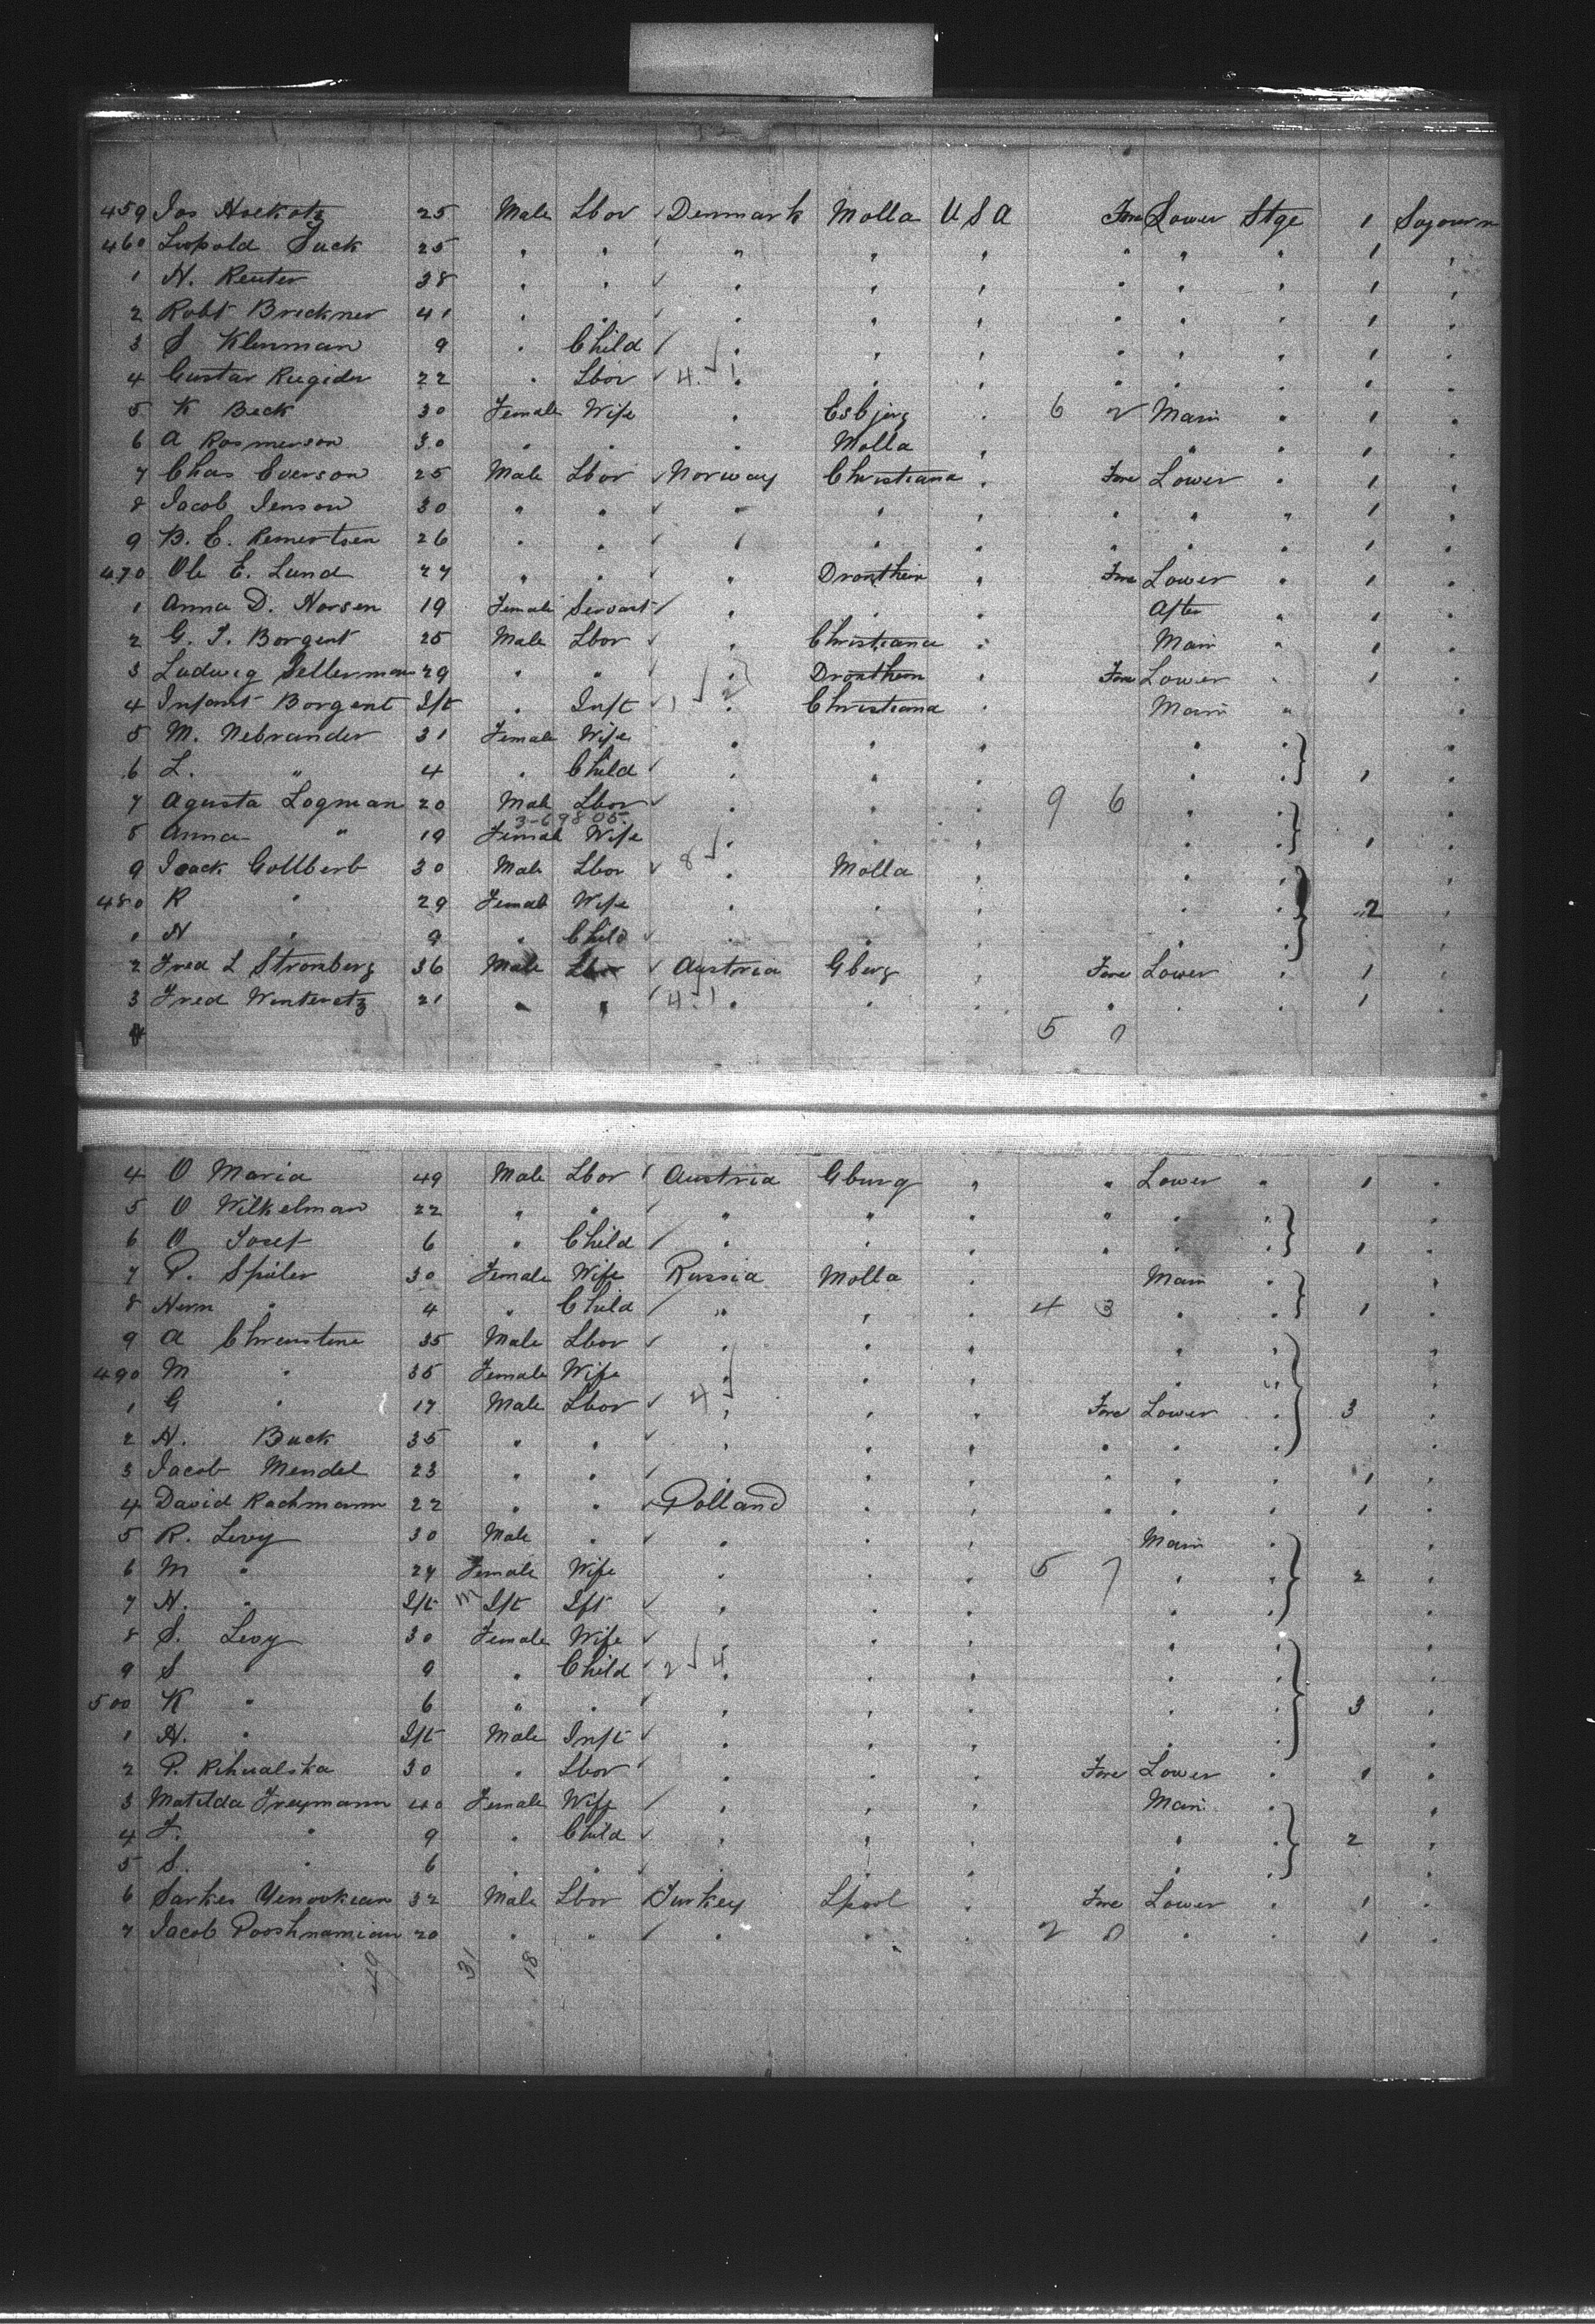 459 Jos Hockotz 25 Male Lbor ✓ Denmark Molla U S A Fore Lower Stge 1 Sojourn
460 Leopold Suck 25 " " ✓ " " " " " " 1 "
1 H. Reuter 38 " " ✓ " " " " " " 1 "
2 Robt Breckner 41 " " ✓ " " " " " " 1 "
3 S Klenman 9 " Child ✓ " " " " " " 1 "
4 Gustav 22 " Lbor ✓ 4 ✓ 1 " " " " " " 1 "
5 K Beck 30 Female Wife " Esbjerg " 6 2 Main " 1 "
6 A Rosmerson 30 " " " Molla " " 1 "
7 Chas Everson 25 Male Lbor ✓ Norway Christiana " Fore Lower " 1 "
8 Jacob Jenson 30 " " ✓ " " " " " " 1 "
9 B. E. Remertsen 26 " " ✓ " " " " " " 1 "
470 Ole E. Lund 27 " " ✓ " Dronthein " Fore Lower " 1 "
1 Anna D. Norsen 19 Female Servant ✓ " " " After " 1 "
2 G. J. Borgent 25 Male Lbor ✓ " Christiana " Main " 1 "
3 Ludwig Sellerman 29 " " ✓ " Dronthein " Fore Lower " 1 "
4 Infant Borgent Ift " Inft ✓ 1 ✓ 2 " Christiana " Main " "
5 M. Nebrander 31 Female Wife " " " " " "
6 L. " 4 " Child ✓ " " " " " 1 "
7 Agusta Logman 20 Male Lbor ✓ " " " 9 6 " " "
3-69805.
8 Anna " 19 Female Wife " " " " " 1 "
9 Isack Gollberb 30 Male Lbor ✓ 8 ✓ " Molla " " " "
480 R " 29 Female Wife " " " " " 2 "
1 N " 9 " Child ✓ " " " " " "
2 Fred L Stronberg 36 Male Lbor ✓ Austria Gberg " Fore Lower " 1 "
3 Fred Winteratz 21 " " ✓ 4 ✓ 1 " " " " " " 1 "
4 5 0
4 O Maria 49 Male Lbor ✓ Austria Gburg " " Lower " 1 "
5 O Wilkelman 22 " " ✓ " " " " " " "
6 O Josef 6 " Child ✓ " " " " " " 1 "
7 P. Spiler 30 Female Wife Russia Molla " Main " "
8 Herm " 4 " Child ✓ " " " 4 3 " " 1 "
9 A Chreustine 35 Male Lbor ✓ " " " " " "
490 M " 35 Female Wife " " " " " "
1 G " 17 Male Lbor ✓ 4 ✓ " " " Fore Lower " 3 "
2 H. Buck 35 " " ✓ " " " " " " "
3 Jacob Mendel 23 " " ✓ " " " " " " 1 "
4 David Rachmann 22 " " ✓ Polland " " " " " 1 "
5 R. Levy 30 Male " ✓ " " " Main " "
6 M " 24 Female Wife " " " 5 7 " " 2 "
7 H. " Ift M Ift Ift ✓ " " " " " "
8 S. Levy 30 Female Wife ✓ " " " " " "
9 S " 9 " Child ✓ 2 ✓ 4 " " " " " "
500 K " 6 " " ✓ " " " " " 3 "
1 H. " Ift Male Inft ✓ " " " " " "
2 P. Rihualska 30 " Lbor ✓ " " " Fore Lower " 1 "
3 Matilda Freymann 40 Female Wife ✓ " " " Main " "
4 F. " 9 " Child ✓ " " " " " 2 "
5 S. " 6 " " ✓ " " " " " "
6 Sarkes Yenookean 32 Male Lbor ✓ Turkey Lpool " Fore Lower " 1 "
7 Jacob Pooshnamian 20 " " ✓ " " " 2 0 " " 1 "
49 31 18